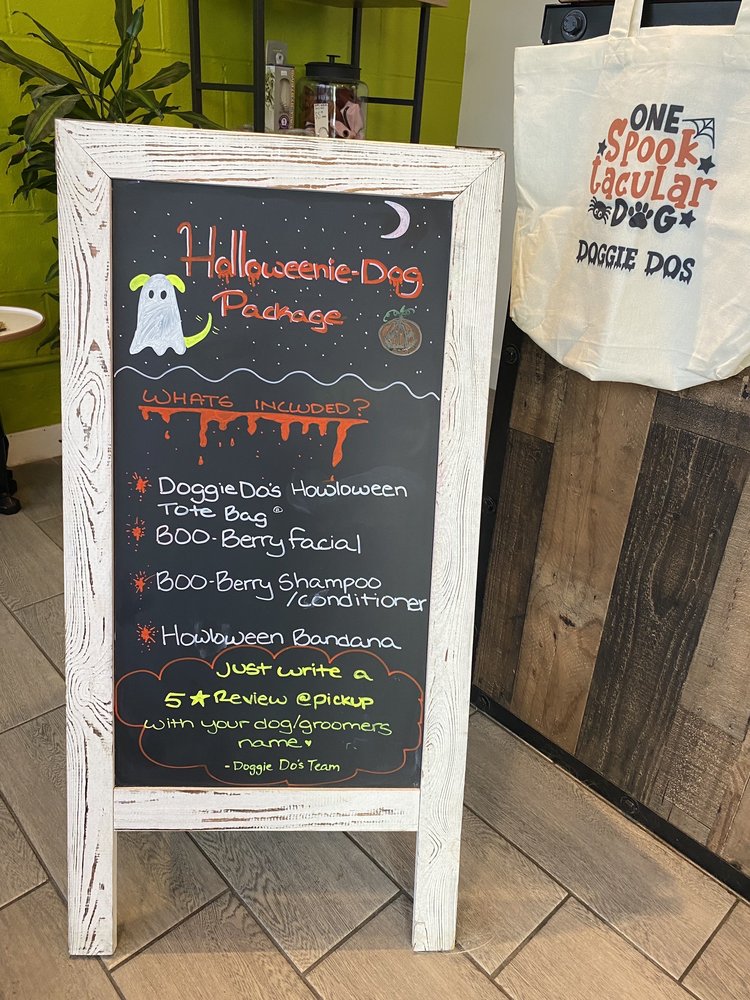 Halloweenie-Dog
Package
WHATS INCLUDED?
DoggieDo's Howloween
Tote Bag
BOO-Berry facial
BOO-Berry Shampoo
/conditioner
Howloween Bandana
Just write a
5 ★ Review @ pickup
with your dog/groomers
name ♥
- Doggie Do's Team
ONE
Spook
tacular
DOG
DOGGIE DOS